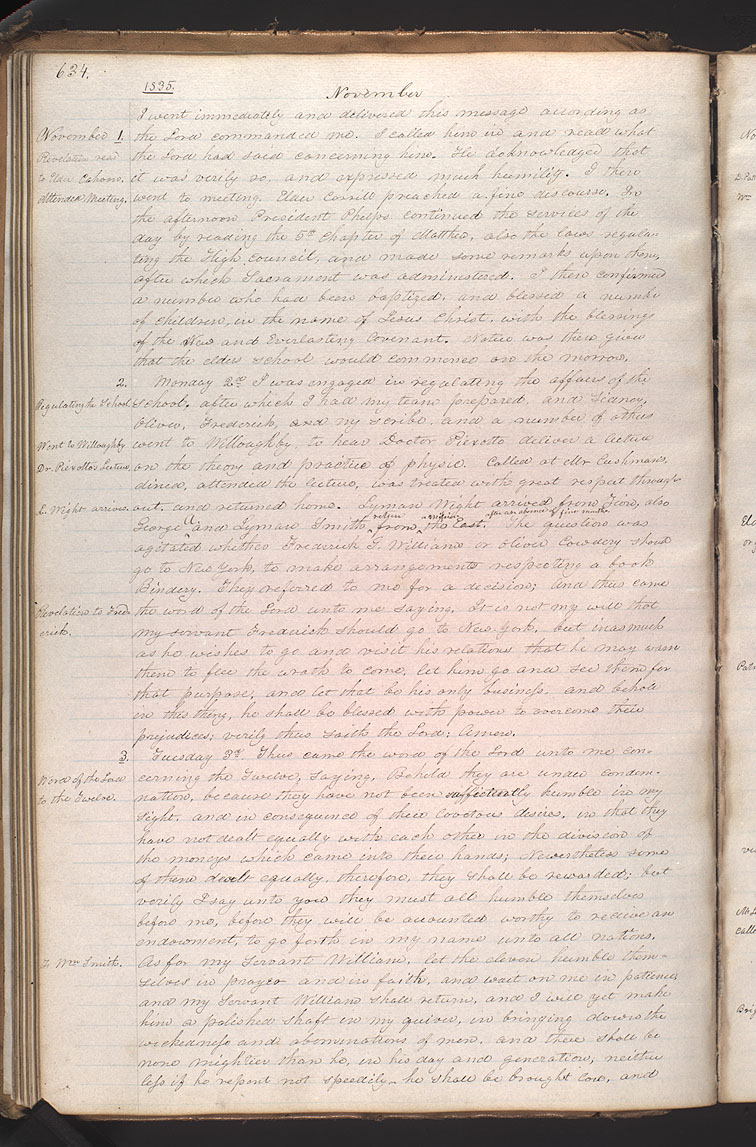 634.
1835.
November
I went immediately and delivered this message according as
November 1.
the Lord commanded me. I called him in and read what
Revelation read
the Lord had said concerning him. He acknowledged that
to Elder Cahoon.
it was verily so, and expressed much humility. I then
Attended Meeting.
went to meeting. Elder Corrill preached a fine discourse. In
the afternoon President Phelps continued the services of the
day by reading the 5th chapter of Matthew, also the laws regula-
ting the High Council, and made some remarks upon them,
after which Sacrament was administered. I then confirmed
a number who had been baptized, and blessed a number
of children, in the name of Jesus Christ, with the blessings
of the New and Everlasting Covenant. Notice was then given
that the elders school would commence on the morrow.
2.
Monday 2nd I was engaged in regulating the affairs of the
Regulating the School
School. after which I had my team prepared, and Sidney,
Oliver, Frederick, and my scribe, and a number of others
Went to Willoughby
went to Willoughby, to hear Doctor Piexotto deliver a lecture
Dr. Piexotto's Lecture,
on the theory and practice of physic. Called at Mr Cushman's,
dined, attended the lecture, was treated with great respect through-
L. Wight arrives
out. and returned home. Lyman Wight arrived from Zion, also
return mission after an absence of five months
George A and Lyman Smith, from the East. The question was
agitated whether Frederick G. Williams or Oliver Cowdery should
go to New York, to make arrangements respecting a book
Bindery. They referred to me for a decision; and thus came
Revelation to Fred-
the word of the Lord unto me saying, It is not my will that
erick.
my servant Frederick should go to New-York, but inasmuch
as he wishes to go and visit his relations that he may warn
them to flee the wrath to come, let him go and see them for
that purpose, and let that be his only business, and behold
in this thing, he shall be blessed with power to overcome their
prejudices; verily thus saith the Lord; Amen.
3.
Tuesday 3d Thus came the word of the Lord unto me con-
Word of the Lord
cerning the Twelve, saying, Behold they are under condem-
to the Twelve.
nation, because they have not been sufficiently humble in my
sight, and in consequence of their covetous desires, in that they
have not dealt equally with each other in the division of
the moneys which came into their hands; Nevertheless some
of them dealt equally, therefore, they shall be rewarded; but
verily I say unto you they must all humble themselves
before me, before they will be accounted worthy to receive an
endowment, to go forth in my name unto all nations.
To Wm Smith.
As for my Servant William, let the eleven humble them-
selves in prayer and in faith, and wait on me in patience,
and my Servant William shall return, and I will yet make
him a polished shaft in my quiver, in bringing down the
wickedness and abominations of men, and there shall be
none mightier than he, in his day and generation, neither
less if he repent not speedily he shall be brought low, and